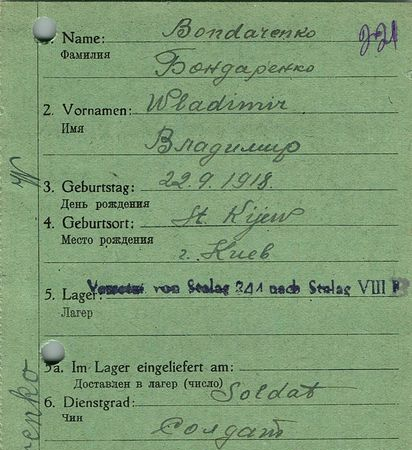 1. Name: Bondarenko 221
Фамилия Бондаренко
2. Vornamen: Wladimir
Имя Владимир
3. Geburtstag: 22.9.1918.
День рождения
4. Geburtsort: St. Kijew
Место рождения г. Киев
5. Lager: Versetzt von Stalag 344 nach Stalag VIII B
Лагер
5a. Im Lager eingeliefert am:
Доставлен в лагер (число)
6. Dienstgrad: Soldat
Чин Солдат
enko